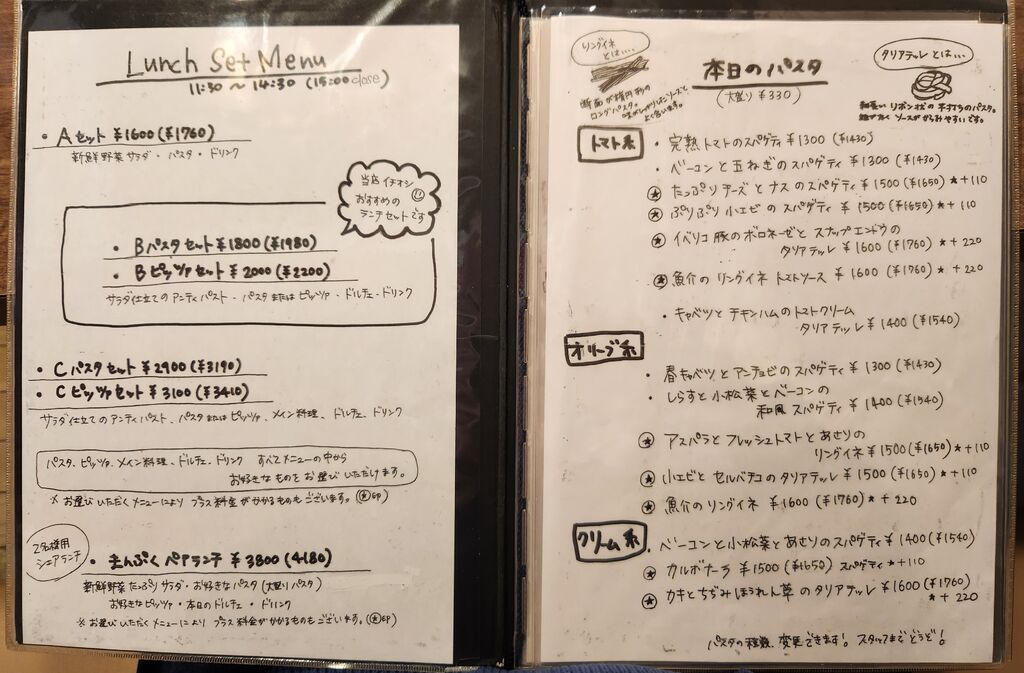 Lunch Set Menu
11:30 ～ 14:30 (15:00 close)
・Aセット ¥1600(¥1760)
新鮮野菜サラダ・パスタ・ドリンク
当店イチオシ
おすすめの
ランチセットです
・Bパスタセット ¥1800(¥1980)
・Bピッツァセット ¥2000(¥2200)
サラダ仕立てのアンティパスト・パスタまたはピッツァ・ドルチェ・ドリンク
・Cパスタセット ¥2900(¥3190)
・Cピッツァセット ¥3100(¥3410)
サラダ仕立てのアンティパスト、パスタまたはピッツァ、メイン料理、ドルチェ、ドリンク
パスタ、ピッツァ、メイン料理、ドルチェ、ドリンク すべてメニューの中から
お好きなものをお選びいただけます。
※お選びいただくメニューにより プラス料金がかかるものもございます。(★印)
2名様用
シェアランチ
・まんぷくペアランチ ¥3800(4180)
新鮮野菜たっぷりサラダ・お好きなパスタ(大盛りパスタ)
お好きなピッツァ・本日のドルチェ・ドリンク
※お選びいただくメニューにより プラス料金がかかるものもございます。(★印)
リングイネ
とは…
断面が楕円形の
ロングパスタ。
よく合います。
本日のパスタ
(大盛り ¥330)
タリアテッレとは…
細長いリボン状の平打ちのパスタ。
ソースがからみやすいです。
トマト系
・完熟トマトのスパゲティ ¥1300(¥1430)
・ベーコンと玉ねぎのスパゲティ ¥1300(¥1430)
★たっぷりチーズとナスのスパゲティ ¥1500(¥1650)★+110
★ぷりぷり小エビのスパゲティ ¥1500(¥1650)★+110
★イベリコ豚のボロネーゼとスナップエンドウの
タリアテッレ ¥1600(¥1760)★+220
★魚介のリングイネ トマトソース ¥1600(¥1760)★+220
・キャベツとチキンハムのトマトクリーム
タリアテッレ ¥1400(¥1540)
オリーブ系
・春キャベツとアンチョビのスパゲティ ¥1300(¥1430)
・しらすと小松菜とベーコンの
和風スパゲティ ¥1400(¥1540)
★アスパラとフレッシュトマトとあさりの
リングイネ ¥1500(¥1650)★+110
★小エビとセルバチコのタリアテッレ ¥1500(¥1650)★+110
★魚介のリングイネ ¥1600(¥1760)★+220
クリーム系
・ベーコンと小松菜とあさりのスパゲティ ¥1400(¥1540)
★カルボナーラ ¥1500(¥1650) スパゲティ★+110
★カキとちぢみほうれん草のタリアテッレ ¥1600(¥1760)
★+220
パスタの種類、変更できます! スタッフまでどうぞ!